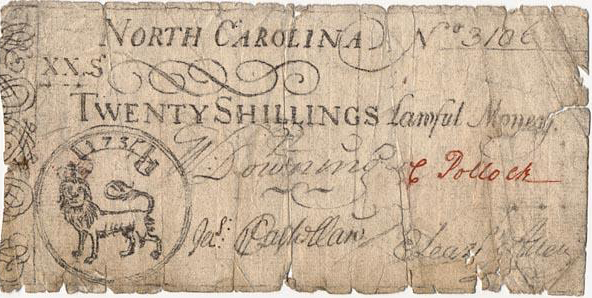 NORTH CAROLINA No 3106
XX.S
TWENTY SHILLINGS Lawful Money.
173
W Downing C Pollock
Jas: Castellaw Eleazr Allen